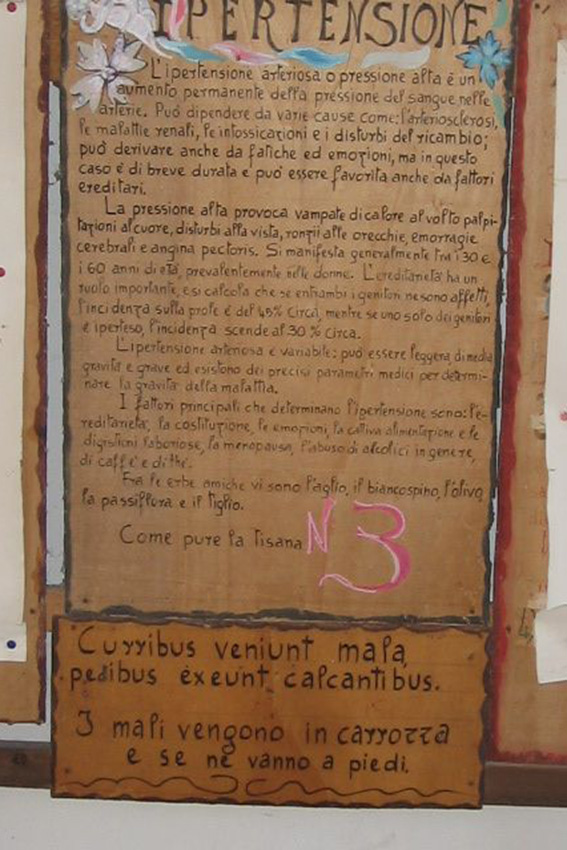 IPERTENSIONE
L'ipertensione arteriosa o pressione alta è un
aumento permanente della pressione del sangue nelle
arterie. Può dipendere da varie cause come: l'arteriosclerosi,
le malattie renali, le intossicazioni e i disturbi del ricambio;
può derivare anche da fatiche ed emozioni, ma in questo
caso è di breve durata e può essere favorita anche da fattori
ereditari.
La pressione alta provoca vampate di calore al volto palpi-
tazioni al cuore, disturbi alla vista, ronzii alle orecchie, emorragie
cerebrali e angina pectoris. Si manifesta generalmente tra i 30 e
i 60 anni di età, prevalentemente nelle donne. L'ereditarietà ha un
ruolo importante, e si calcola che se entrambi i genitori ne sono affetti,
l'incidenza sulla prole è del 45% circa, mentre se uno solo dei genitori
è iperteso, l'incidenza scende al 30% circa.
L'ipertensione arteriosa è variabile: può essere leggera, di media
gravità e grave ed esistono dei precisi parametri medici per determi-
nare la gravità della malattia.
I fattori principali che determinano l'ipertensione sono: l'e-
reditarietà, la costituzione, le emozioni, la cattiva alimentazione e le
digestioni laboriose, la menopausa, l'abuso di alcolici in genere,
di caffè e di thè.
Fra le erbe amiche vi sono l'aglio, il biancospino, l'olivo
la passiflora e il tiglio.
Come pure la tisana N 3
Curribus veniunt mala,
pedibus exeunt calcantibus.
I mali vengono in carrozza
e se ne vanno a piedi.